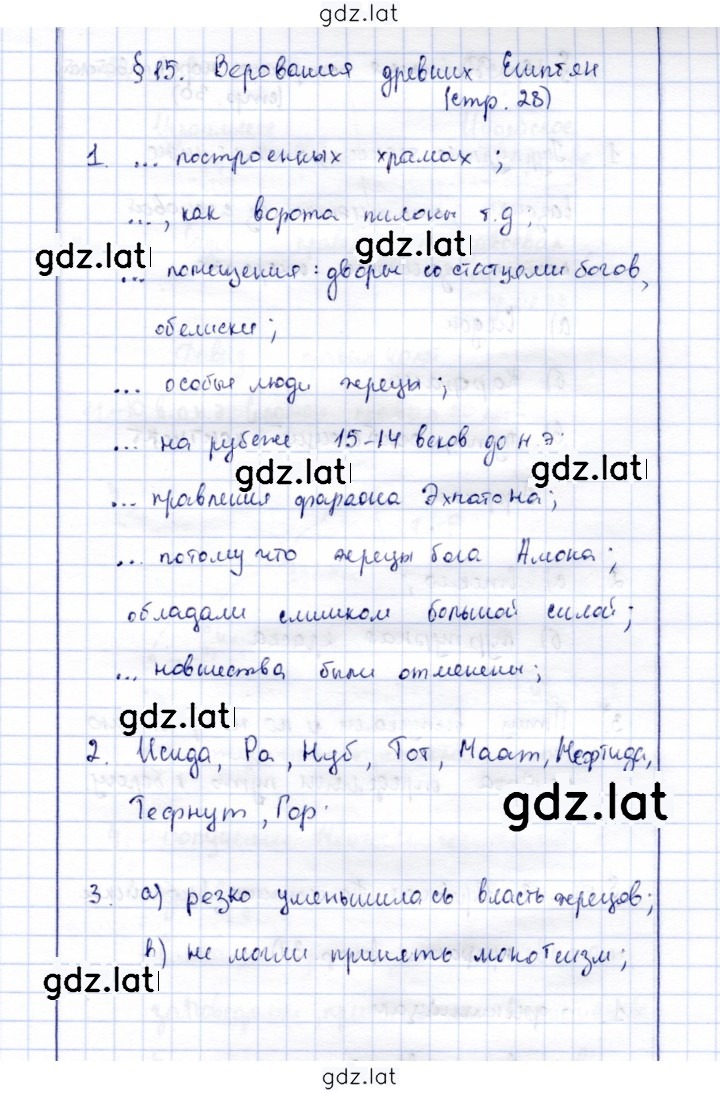 gdz.lat
§ 15. Верования древних Египтян
(стр. 28)
1. ... построенных храмах ;
... , как ворота пилоны т.д ;
gdz.lat gdz.lat
... помещения : дворы со статцеми богов,
обелиски ;
... особые люди жрецы ;
... на рубеже 15-14 веков до н.э
gdz.lat gdz.lat
... правления фараона Эхнатона ;
... потому что жрецы бога Амона ;
обладали слишком большой силой ;
... новшества были отменены ;
gdz.lat
2. Исида, Ра, Нуб, Тот, Маат, Нефтида,
gdz.lat
Тефнут, Гор.
3. а) резко уменьшилась власть жрецов ;
в) не могли принять монотеизм ;
gdz.lat
gdz.lat